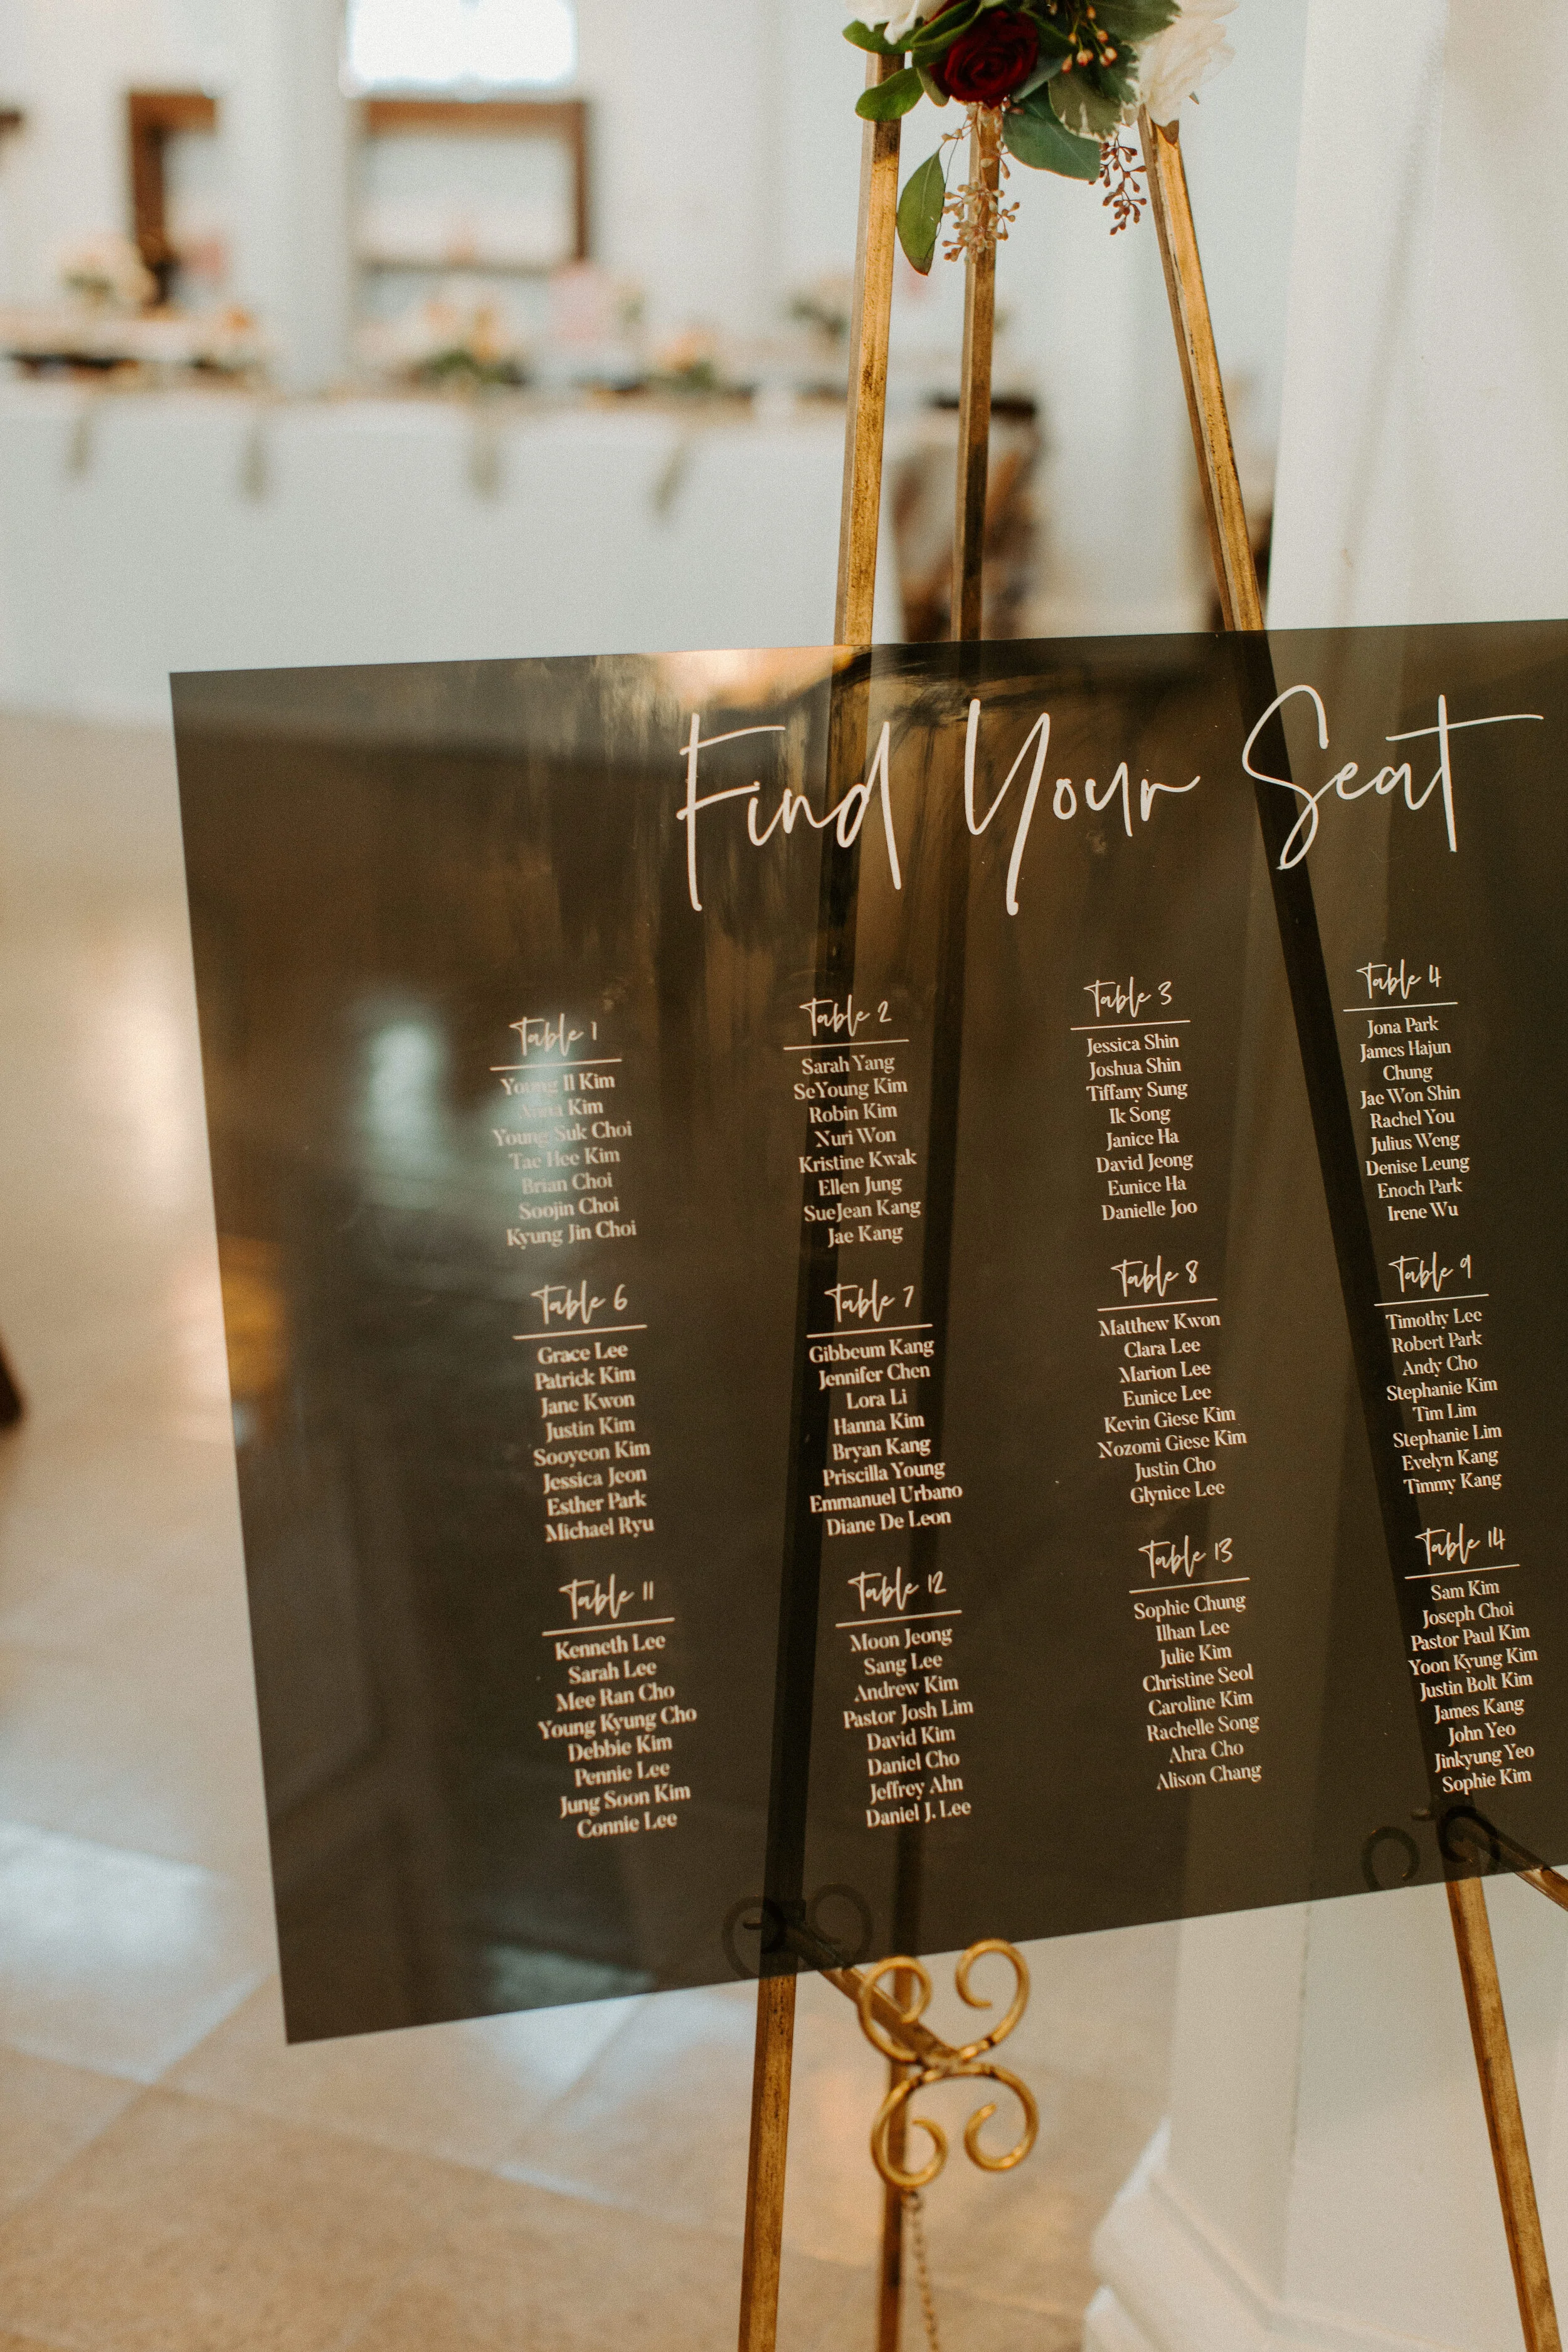 Find Your Seat
Table 1
Young Il Kim
Anna Kim
Young Suk Choi
Tae Hee Kim
Brian Choi
Soojin Choi
Kyung Jin Choi
Table 2
Sarah Yang
SeYoung Kim
Robin Kim
Nuri Won
Kristine Kwak
Ellen Jung
SueJean Kang
Jae Kang
Table 3
Jessica Shin
Joshua Shin
Tiffany Sung
Ik Song
Janice Ha
David Jeong
Eunice Ha
Danielle Joo
Table 4
Jona Park
James Hajun
Chung
Jae Won Shin
Rachel You
Julius Weng
Denise Leung
Enoch Park
Irene Wu
Table 6
Grace Lee
Patrick Kim
Jane Kwon
Justin Kim
Sooyeon Kim
Jessica Jeon
Esther Park
Michael Ryu
Table 7
Gibbeum Kang
Jennifer Chen
Lora Li
Hanna Kim
Bryan Kang
Priscilla Young
Emmanuel Urbano
Diane De Leon
Table 8
Matthew Kwon
Clara Lee
Marion Lee
Eunice Lee
Kevin Giese Kim
Nozomi Giese Kim
Justin Cho
Glynice Lee
Table 9
Timothy Lee
Robert Park
Andy Cho
Stephanie Kim
Tim Lim
Stephanie Lim
Evelyn Kang
Timmy Kang
Table 11
Kenneth Lee
Sarah Lee
Mee Ran Cho
Young Kyung Cho
Debbie Kim
Pennie Lee
Jung Soon Kim
Connie Lee
Table 12
Moon Jeong
Sang Lee
Andrew Kim
Pastor Josh Lim
David Kim
Daniel Cho
Jeffrey Ahn
Daniel J. Lee
Table 13
Sophie Chung
Ilhan Lee
Julie Kim
Christine Seol
Caroline Kim
Rachelle Song
Ahra Cho
Alison Chang
Table 14
Sam Kim
Joseph Choi
Pastor Paul Kim
Yoon Kyung Kim
Justin Bolt Kim
James Kang
John Yeo
Jinkyung Yeo
Sophie Kim